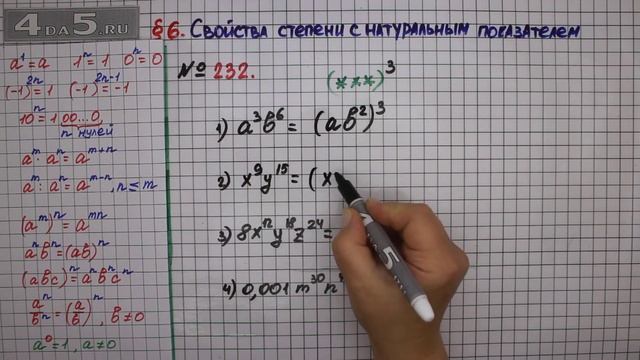 4DA5.RU
§ 6. Свойства степени с натуральным показателем
a¹ = a 1ⁿ = 1 0ⁿ = 0
(-1)²ⁿ = 1 (-1)²ⁿ⁻¹ = -1
10ⁿ = 1 00...0,
n нулей
aᵐ · aⁿ = aᵐ⁺ⁿ
aᵐ : aⁿ = aᵐ⁻ⁿ, n ≤ m
(aᵐ)ⁿ = aᵐⁿ
aⁿbⁿ = (ab)ⁿ
(abc)ⁿ = aⁿbⁿcⁿ
aⁿ/bⁿ = (a/b)ⁿ, b ≠ 0
a⁰ = 1, a ≠ 0
№ 232.
(***)³
1) a³b⁶ = (ab²)³
2) x⁹y¹⁵ = (x
3) 8x¹²y¹⁸z²⁴ =
4) 0,001 m³⁰n